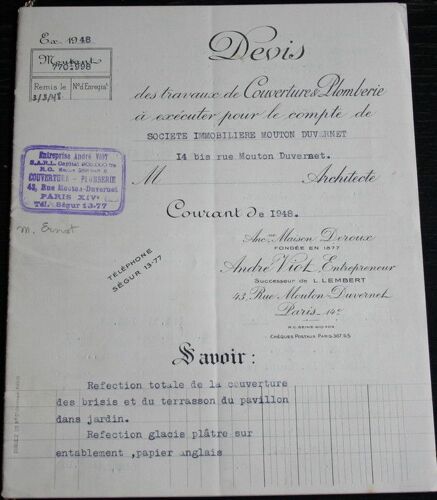 Ex. 1948
Montant
770.998
Remis le
N° d'Enregist
3/3/48
Devis
des travaux de Couverture & Plomberie
à exécuter pour le compte de
SOCIETE IMMOBILIERE MOUTON DUVERNET
14 bis rue Mouton Duvernet.
M
Architecte
Courant de 1948.
Entreprise André VIOT
S.A.R.L. Capital 900.000 frs
COUVERTURE - PLOMBERIE
43, Rue Mouton-Duvernet
PARIS XIVe
Tél. Ségur 13-77
M. Ernst
TÉLÉPHONE
SÉGUR 13-77
Anc.ne Maison Deroux
FONDÉE EN 1877
André Viot, Entrepreneur
Successeur de L. LEMBERT
43, Rue Mouton-Duvernet
Paris_14e
R.C. SEINE
CHÈQUES POSTAUX PARIS
Savoir :
Refection totale de la couverture
des brisis et du terrasson du pavillon
dans jardin.
Refection glacis plâtre sur
entablement ,papier anglais